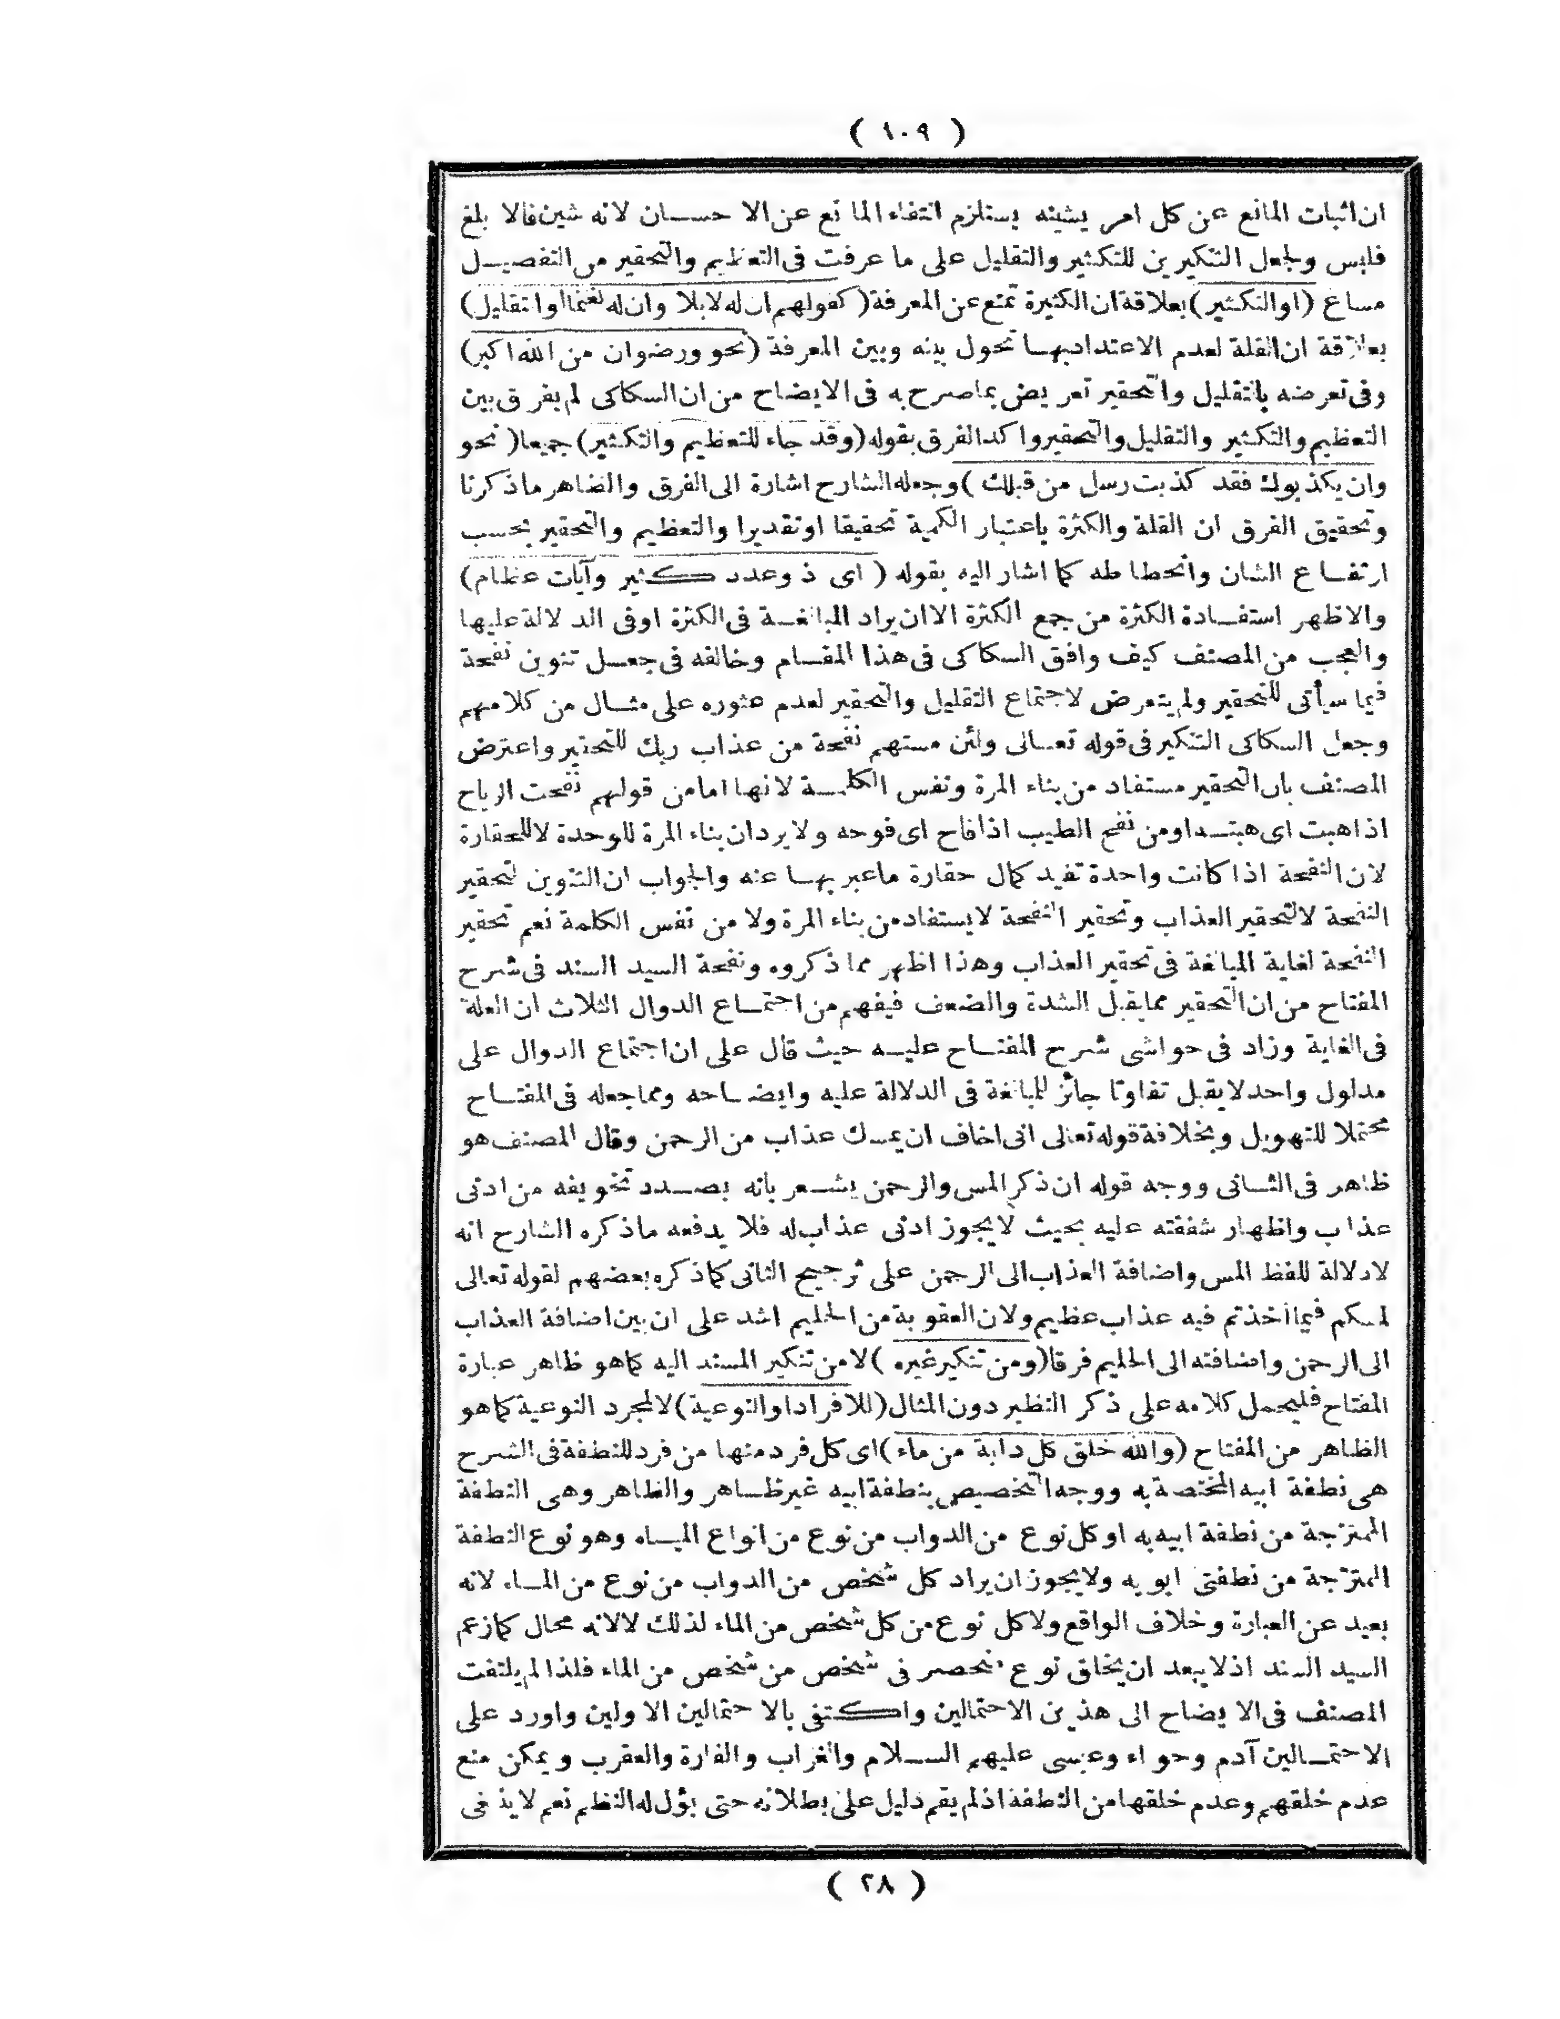 ( ١٠٩ )
ان اثبات المانع عن كل امر يشينه يستلزم انتفاء المانع عن الاحسان لانه شين فالابلغ
فليس ولجعل التنكيرين للتكثير والتقليل على ما عرفت فى التعظيم والتحقير من التفصيل
مساغ (اوالتكثير) بعلاقة ان الكثيرة تمنع عن المعرفة (كقولهم ان له لابلا وان له لغنما اوالتقليل)
بعلاقة ان القلة لعدم الاعتداد بها تحول بينه وبين المعرفة (نحو ورضوان من الله اكبر)
وفى تعرضه بالتقليل والتحقير تعريض بما صرح به فى الايضاح من ان السكاكى لم يفرق بين
التعظيم والتكثير والتقليل والتحقير واكد الفرق بقوله (وقد جاء للتعظيم والتكثير) جميعا (نحو
وان يكذبوك فقد كذبت رسل من قبلك) وجعله الشارح اشارة الى الفرق والظاهر ماذكرنا
وتحقيق الفرق ان القلة والكثرة باعتبار الكمية تحقيقا اوتقديرا والتعظيم والتحقير بحسب
ارتفاع الشان وانحطاطه كما اشار اليه بقوله (اى ذوعدد كثير وآيات عظام)
والاظهر استفادة الكثرة من جمع الكثرة الا ان يراد المبالغة فى الكثرة اوفى الدلالة عليها
والعجب من المصنف كيف وافق السكاكى فى هذا المقام وخالفه فى جعل تنوين نفحة
فيما سيأتى للتحقير ولم يتعرض لاجتماع التقليل والتحقير لعدم عثوره على مثال من كلامهم
وجعل السكاكى التنكير فى قوله تعالى ولئن مستهم نفحة من عذاب ربك للتحقير واعترض
المصنف بان التحقير مستفاد من بناء المرة ونفس الكلمة لانها امامن قولهم نفحت الرياح
اذاهبت اى هبته اومن نفح الطيب اذافاح اى فوحه ولا يرد ان بناء المرة للوحدة لا للحقارة
لان النفحة اذا كانت واحدة تفيد كمال حقارة ماعبر بها عنه والجواب ان التنوين لتحقير
النفحة لا لتحقير العذاب وتحقير النفحة لايستفاد من بناء المرة ولا من نفس الكلمة نعم تحقير
النفحة لغاية المبالغة فى تحقير العذاب وهذا اظهر مما ذكروه ونفحة السيد السند فى شرح
المفتاح من ان التحقير مما يقبل الشدة والضعف فيفهم من اجتماع الدوال الثلاث ان العلة
فى الغاية وزاد فى حواشى شرح المفتاح عليه حيث قال على ان اجتماع الدوال على
مدلول واحد لايقبل تفاوتا جائز للمبالغة فى الدلالة عليه وايضاحه ومما جعله فى المفتاح
محتملا للتهويل وبخلافة قوله تعالى انى اخاف ان يمسك عذاب من الرحمن وقال المصنف هو
ظاهر فى الثانى ووجه قوله ان ذكر المس والرحمن يشعر بانه بصدد تخويفه من ادنى
عذاب واظهار شفقته عليه بحيث لايجوز ادنى عذاب له فلا يدفعه ماذكره الشارح انه
لادلالة للفظ المس واضافة العذاب الى الرحمن على ترجيح الثانى كما ذكره بعضهم لقوله تعالى
لمسكم فيما اخذتم فيه عذاب عظيم ولان العقوبة من الحليم اشد على ان بين اضافة العذاب
الى الرحمن واضافته الى الحليم فرقا (ومن تنكير غيره) لامن تنكير المسند اليه كما هو ظاهر عبارة
المفتاح فليحمل كلامه على ذكر النظير دون المثال (للافراد اوالنوعية) لالمجرد النوعية كما هو
الظاهر من المفتاح (والله خلق كل دابة من ماء) اى كل فرد منها من فرد للنطفة فى الشرح
هى نطفة ابيه المختصة به ووجه التخصيص بنطفة ابيه غير ظاهر والظاهر وهى النطفة
الممتزجة من نطفة ابيه به اوكل نوع من الدواب من نوع من انواع المياه وهو نوع النطفة
الممتزجة من نطفتى ابويه ولايجوز ان يراد كل شخص من الدواب من نوع من الماء لانه
بعيد عن العبارة وخلاف الواقع ولا كل نوع من كل شخص من الماء لذلك لالانه محال كما زعم
السيد السند اذلا يبعد ان يخلق نوع منحصر فى شخص من شخص من الماء فلذا لم يلتفت
المصنف فى الايضاح الى هذين الاحتمالين واكتفى بالاحتمالين الاولين واورد على
الاحتمالين آدم وحواء وعيسى عليهم السلام والغراب والفارة والعقرب ويمكن منع
عدم خلقهم وعدم خلقها من النطفة اذلم يقم دليل على بطلانه حتى يؤل له النظم نعم لاينبغى
( ٢٨ )